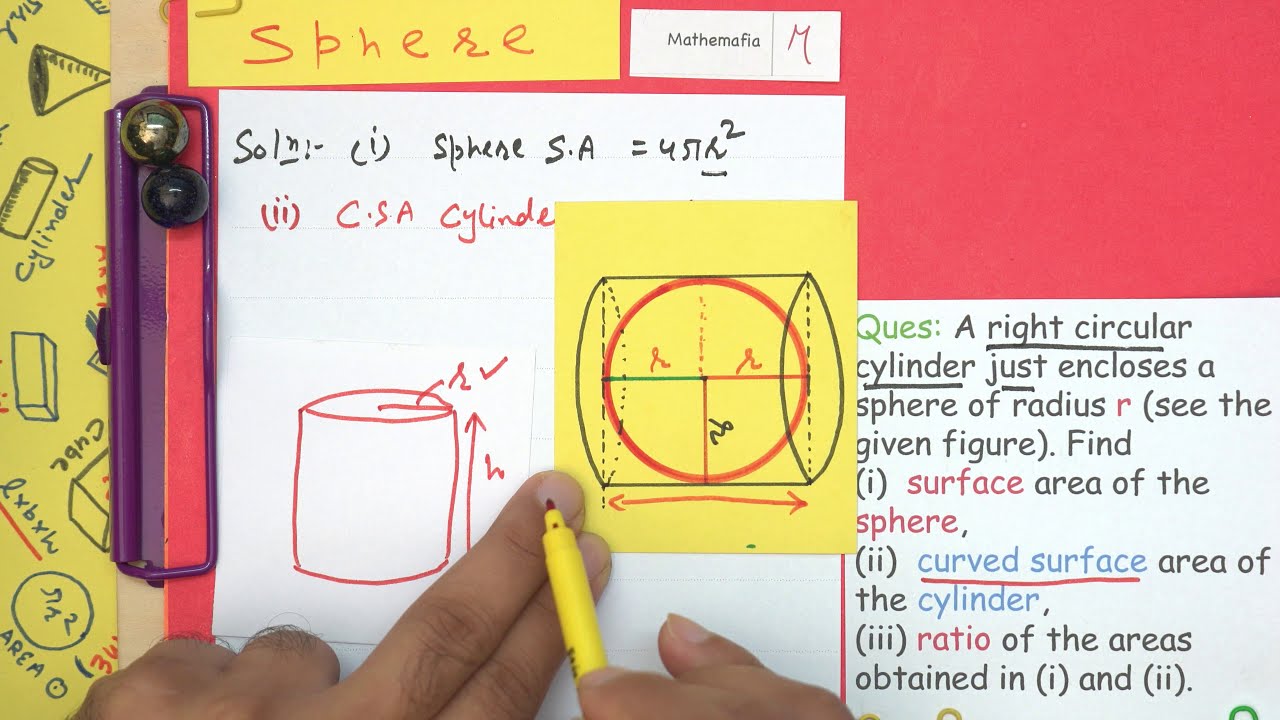 Sphere
Mathemafia M
Soln:- (i) Sphere S.A = 4πr²
(ii) C.S.A Cylinde
r ✓
h
r r
r
Ques: A right circular
cylinder just encloses a
sphere of radius r (see the
given figure). Find
(i) surface area of the
sphere,
(ii) curved surface area of
the cylinder,
(iii) ratio of the areas
obtained in (i) and (ii).
Cylinder
Cube
l×b×h
πr²
AREA